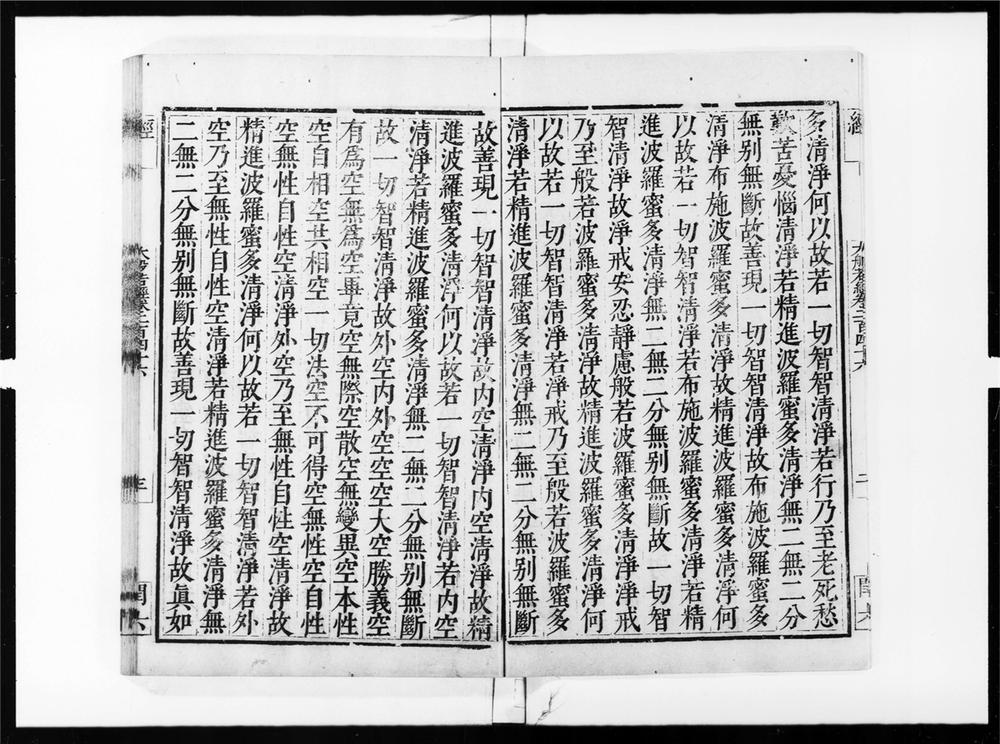 經
大般若經卷二百四十六
二
閏六
多清淨何以故若一切智智清淨若行乃至老死愁
歎苦憂惱清淨若精進波羅蜜多清淨無二無二分
無別無斷故善現一切智智清淨故布施波羅蜜多
清淨布施波羅蜜多清淨故精進波羅蜜多清淨何
以故若一切智智清淨若布施波羅蜜多清淨若精
進波羅蜜多清淨無二無二分無別無斷故一切智
智清淨故淨戒安忍靜慮般若波羅蜜多清淨淨戒
乃至般若波羅蜜多清淨故精進波羅蜜多清淨何
以故若一切智智清淨若淨戒乃至般若波羅蜜多
清淨若精進波羅蜜多清淨無二無二分無別無斷
故善現一切智智清淨故內空清淨內空清淨故精
進波羅蜜多清淨何以故若一切智智清淨若內空
清淨若精進波羅蜜多清淨無二無二分無別無斷
故一切智智清淨故外空內外空空空大空勝義空
有為空無為空畢竟空無際空散空無變異空本性
空自相空共相空一切法空不可得空無性空自性
空無性自性空清淨外空乃至無性自性空清淨故
精進波羅蜜多清淨何以故若一切智智清淨若外
空乃至無性自性空清淨若精進波羅蜜多清淨無
二無二分無別無斷故善現一切智智清淨故真如
經
大般若經卷二百四十六
三
閏六